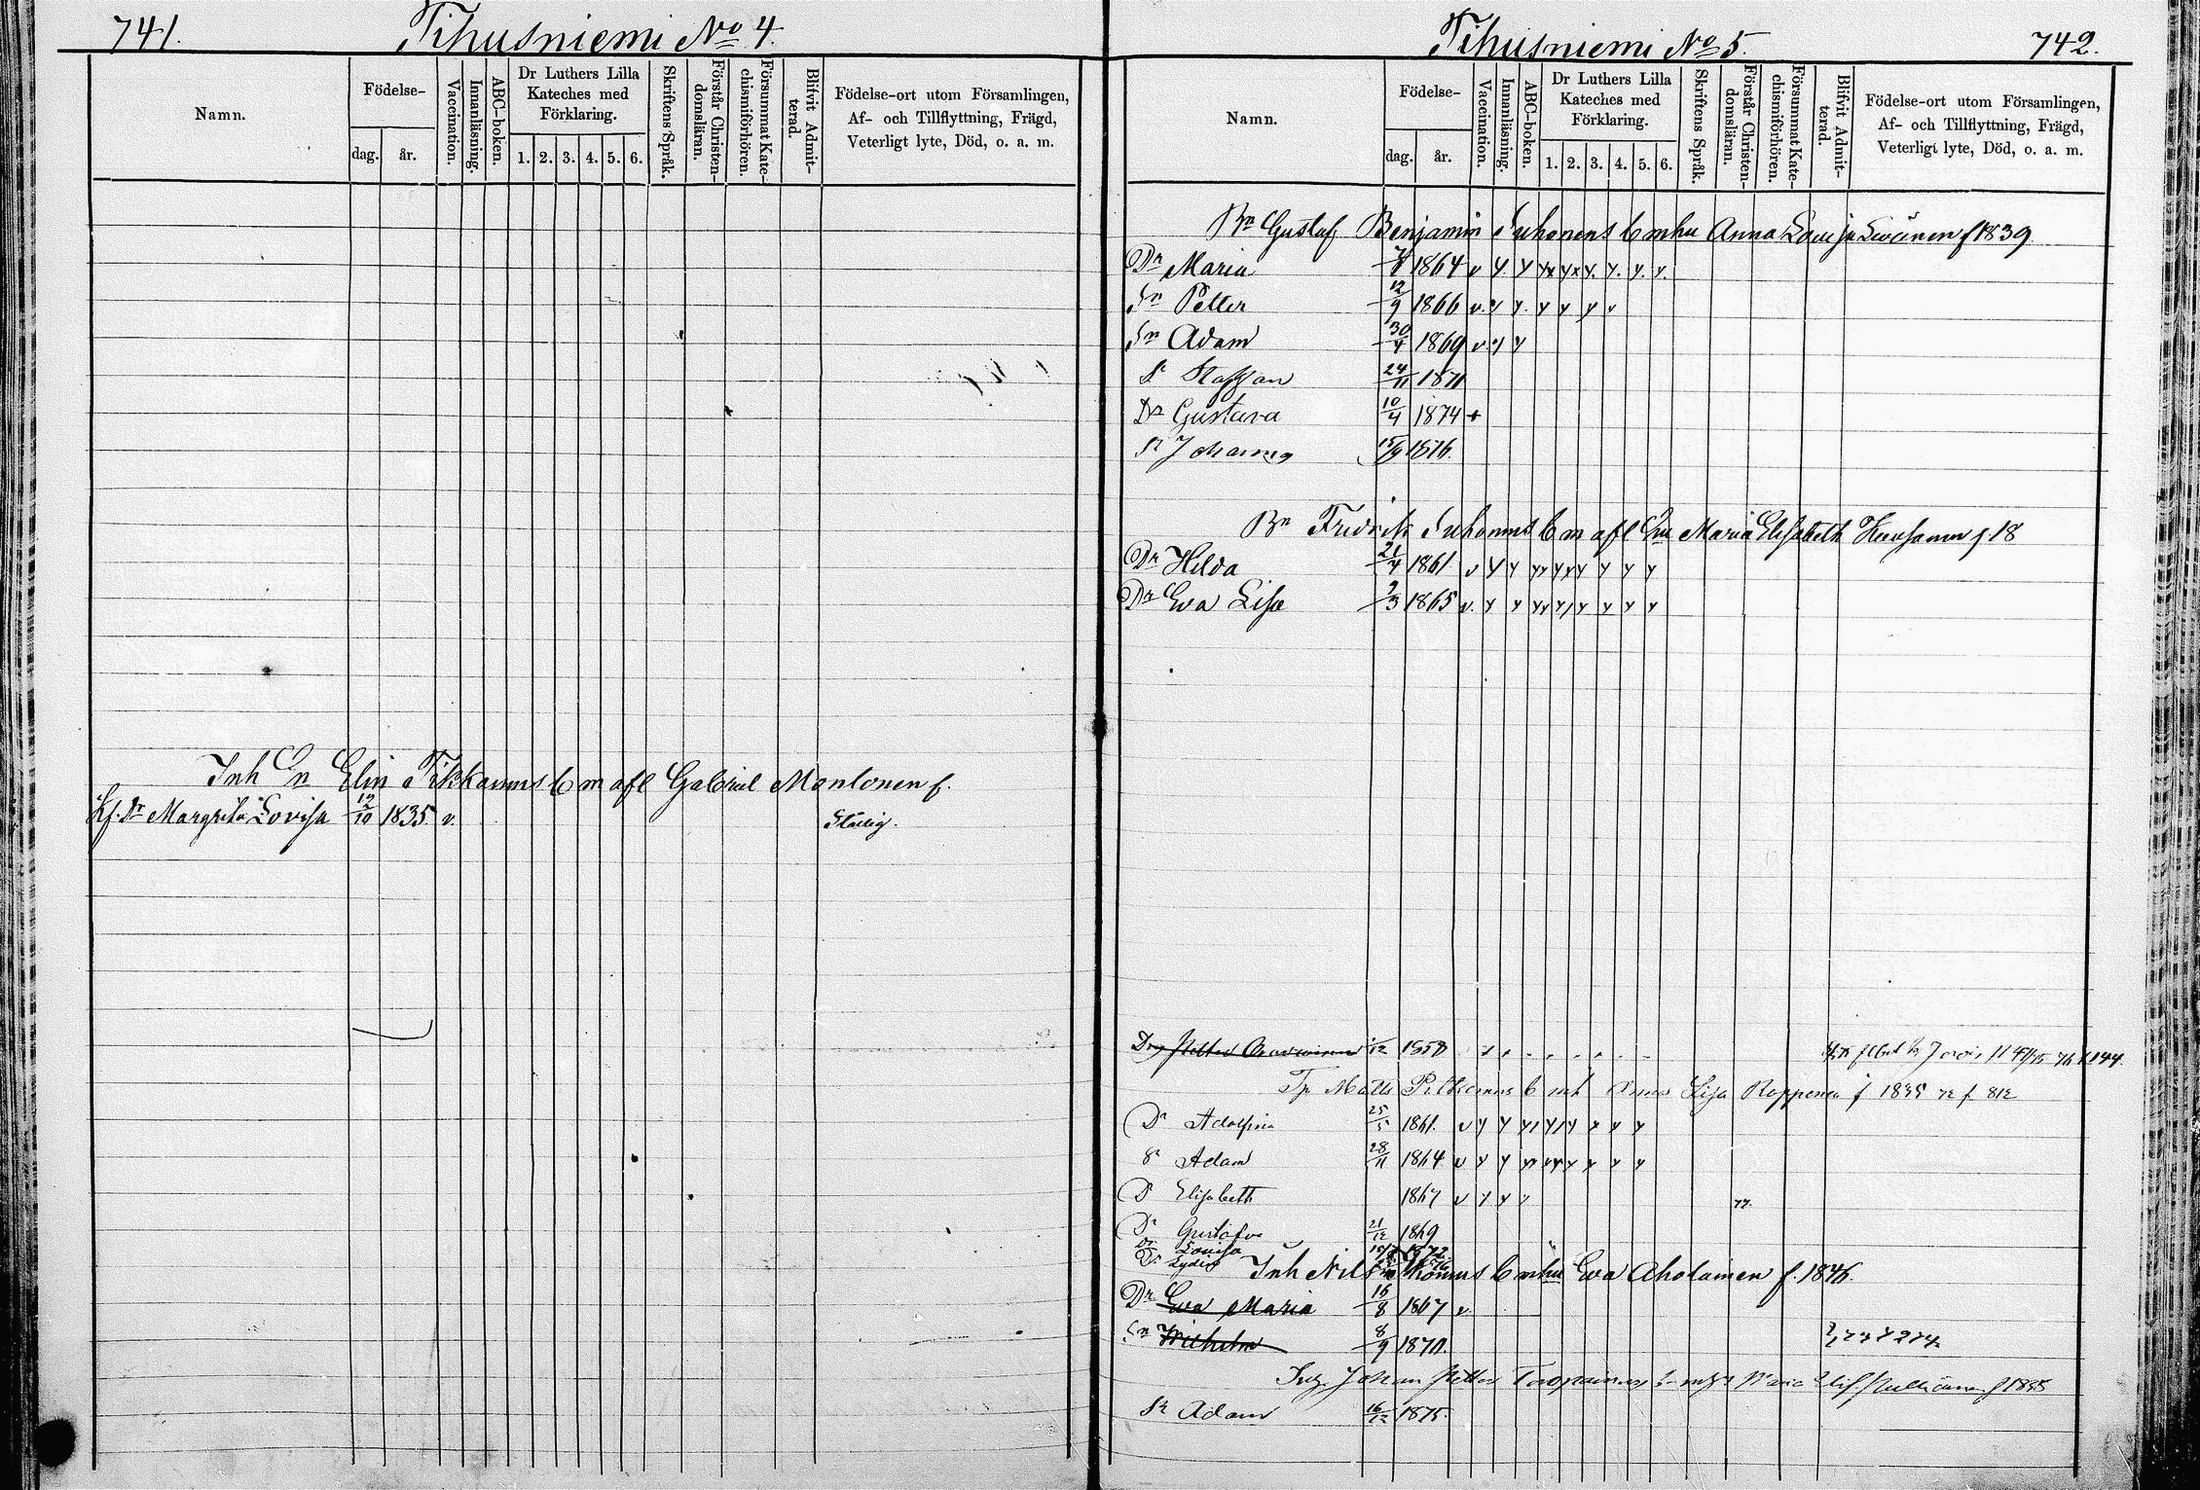 741.
Tihusniemi No 4.
Namn.
Födelse-
dag.
år.
Vaccination.
Innanläsning.
ABC-boken.
Dr Luthers Lilla
Kateches med
Förklaring.
1. 2. 3. 4. 5. 6.
Skriftens Språk.
Förstår Christen-
domsläran.
Försummat Kate-
chismiförhören.
Blifvit Admit-
terad.
Födelse-ort utom Församlingen,
Af- och Tillflyttning, Frägd,
Veterligt lyte, Död, o. a. m.
Inh En Elin Tikkanens b m afl Gabriel Manlonen f.
Kf. Dr Margreta Lovisa 12/10 1835 v.
Tihusniemi No 5.
742.
Namn.
Födelse-
dag.
år.
Vaccination.
Innanläsning.
ABC-boken.
Dr Luthers Lilla
Kateches med
Förklaring.
1. 2. 3. 4. 5. 6.
Skriftens Språk.
Förstår Christen-
domsläran.
Försummat Kate-
chismiförhören.
Blifvit Admit-
terad.
Födelse-ort utom Församlingen,
Af- och Tillflyttning, Frägd,
Veterligt lyte, Död, o. a. m.
Bn Gustaf Benjamin Suhonens b m hu Anna f 1839
Dr Maria 1864 v y y yx yx y. y. y. y.
Sn Petter 12/9 1866 v. y y. y y y v
Sn Adam 30/4 1869 v. y y
S Staffan 24/11 1871
Dr Gustava 10/4 1874 +
Sn Johannes 15/9 1876.
Bn Fredrik Suhonens b m afl Maria Elisabeth f. 18
Dr Hilda 21/4 1861 v y y yx y xy y y y
Dr Eva Lisa 2/3 1865 v. y y yx y y y y y
1858
Matts b m h Anna Lisa Roppenen f 1835 72 f 812
Dr Adolfina 25/5 1861. v y y y y y y y y
S Adam 28/11 1864 v y y yx yx y y y y
D Elisabeth 1867 v y y y
77.
Dr Gustafva 21/12 1869
Dr Lovisa 1872
Dr Lydia
Inh Nils b m hu Eva Aholainen f. 1846.
Dr Eva Maria 16/8 1867 v
Sn Wilhelm 8/9 1870.
Johan Petter Maria f 1835
Sn Adam 16/12 1875.